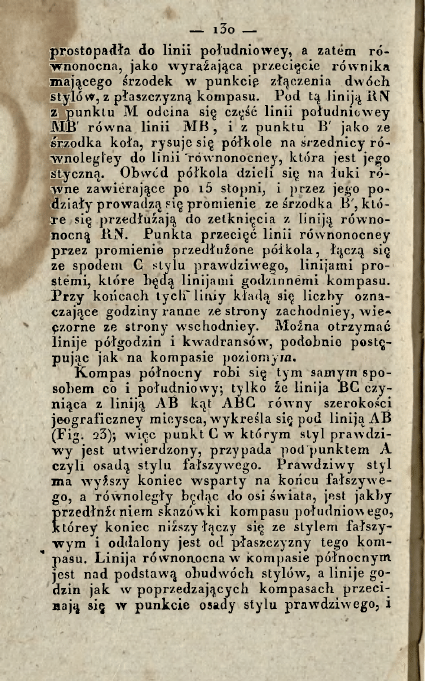 — 130 —
prostopadła do linii południowey, a zatém ró-
wnonocna, jako wyrażająca przecięcie równika
mającego śrzodek w punkcie złączenia dwóch
stylów, z płaszczyzną kompasu. Pod tą liniją RN
z punktu M odcina się część linii południowey
MB' równa linii MB, i z punktu B' jako ze
śrzodka koła, rysuje się półkole na śrzednicy ró-
wnoległey do linii równonocney, która jest jego
styczną. Obwód półkola dzieli się na łuki ró-
wne zawiérające po 15 stopni, i przez jego po-
działy prowadzą się promienie ze śrzodka B', któ-
re się przedłużają do zetknięcia z liniją równo-
nocną RN. Punkta przecięć linii równonocney
przez promienie przedłużone półkola, łączą się
ze spodem C stylu prawdziwego, linijami pro-
stémi, które będą linijami godzinnémi kompasu.
Przy końcach tych liniy kładą się liczby ozna-
czające godziny ranne ze strony zachodniey, wie-
czorne ze strony wschodniey. Można otrzymać
linije półgodzin i kwadransów, podobnie postę-
pując jak na kompasie poziomym.
Kompas północny robi się tym samym spo-
sobem co i południowy; tylko że linija BC czy-
niąca z liniją AB kąt ABC równy szerokości
jeograficzney mieysca, wykreśla się pod liniją AB
(Fig. 23); więc punkt C w którym styl prawdzi-
wy jest utwierdzony, przypada pod punktem A
czyli osadą stylu fałszywego. Prawdziwy styl
ma wyższy koniec wsparty na końcu fałszywe-
go, a równoległy będąc do osi świata, jest jakby
przedłużeniem skazówki kompasu południowego,
którey koniec niższy łączy się ze stylem fałszy-
wym i oddalony jest od płaszczyzny tego kom-
pasu. Linija równonocna w kompasie północnym
jest nad podstawą obudwóch stylów, a linije go-
dzin jak w poprzedzających kompasach przeci-
nają się w punkcie osady stylu prawdziwego, i